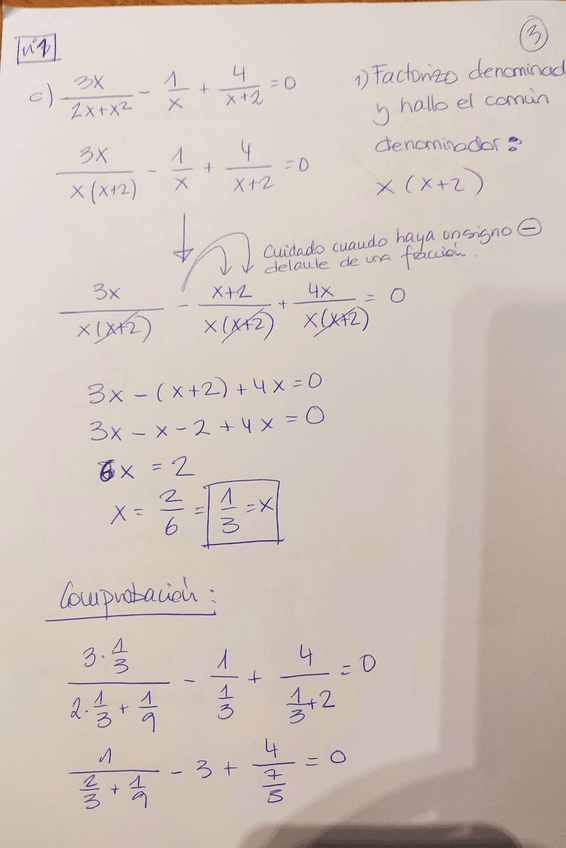 nº1
3
c) 3x/(2x+x²) - 1/x + 4/(x+2) = 0
1) Factorizo denominad
y hallo el común
denominador:
x (x+2)
3x/(x(x+2)) - 1/x + 4/(x+2) = 0
Cuidado cuando haya un signo ⊖
delante de una fracción.
3x/(x(x+2)) - (x+2)/(x(x+2)) + 4x/(x(x+2)) = 0
3x - (x+2) + 4x = 0
3x - x - 2 + 4x = 0
6x = 2
x = 2/6 = 1/3 = x
Comprobación:
(3·1/3)/(2·1/3 + 1/9) - 1/(1/3) + 4/(1/3+2) = 0
1/(2/3 + 1/9) - 3 + 4/(7/3) = 0